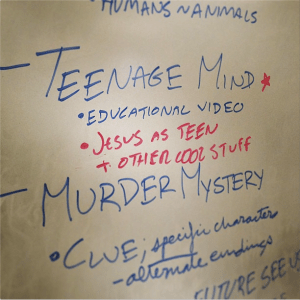 HUMANS ~ ANIMALS
- TEENAGE MIND *
• EDUCATIONAL VIDEO
• JESUS AS TEEN
+ OTHER COOL STUFF
- MURDER MYSTERY
• CLUE; specific character
- alternate endings
FUTURE SEE US